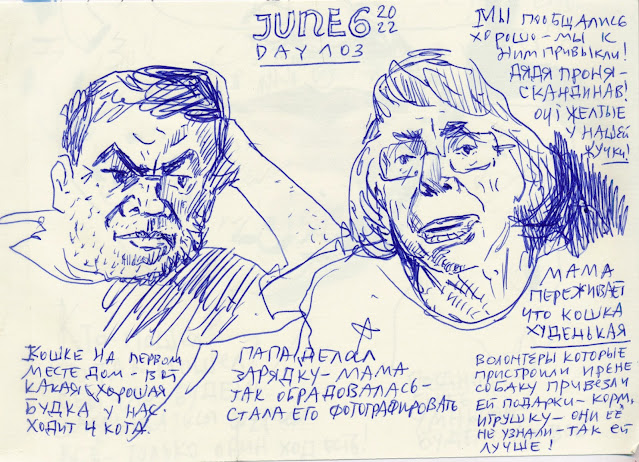 JUNE 6 2022
DAY 103
МЫ ПООБЩАЛИСЬ
ХОРОШО - МЫ К
НИМ ПРИВЫКЛИ!
ДЯДЯ ПРОНЯ -
СКАНДИНАВ!
ЖЕЛТЫЕ
У НАШЕЙ
ЖУЧКИ!
МАМА
ПЕРЕЖИВАЕТ
ЧТО КОШКА
ХУДЕНЬКАЯ
КОШКЕ НА ПЕРВОМ
МЕСТЕ ДОМ - ВОТ
КАКАЯ ХОРОШАЯ
БУДКА У НАС.
ХОДИТ 4 КОТА.
ПАПА ДЕЛАЛ
ЗАРЯДКУ - МАМА
ТАК ОБРАДОВАЛАСЬ -
СТАЛА ЕГО ФОТОГРАФИРОВАТЬ
ВОЛОНТЁРЫ КОТОРЫЕ
ПРИСТРОИЛИ ИРЕНЕ
СОБАКУ ПРИВЕЗЛИ
ЕЙ ПОДАРКИ - КОРМ,
ИГРУШКУ - ОНИ ЕЁ
НЕ УЗНАЛИ - ТАК ЕЙ
ЛУЧШЕ!